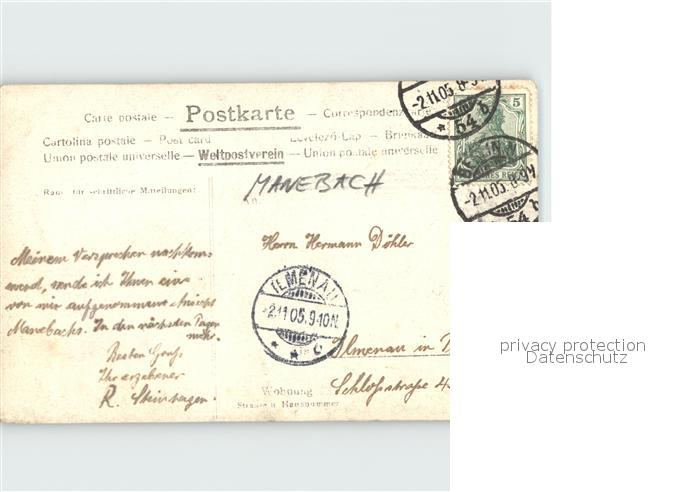 -2.11.05.8-9N
* 54 b
5
Carte postale – Postkarte – Correspondenzkarte
Cartolina postale – Post card Levelező-Lap – Briefkaa
Union postale universelle – Weltpostverein – Union postale universelle
BERLIN N
-2.11.05.8-9N
54 b
Raum für schriftliche Mitteilungen:
MANEBACH
An
Herrn Hermann Döhler
Meinem Versprechen nachkom
mend, sende ich Ihnen eine
von mir aufgenommene Ansicht
Manebachs. In den nächsten Tagen
mehr.
Besten Gruß
Ihr ergebener
R. Steinhagen.
ILMENAU
-2.11.05.9-10N
* * c
Ilmenau in T
Wohnung
Schloßstraße 4
Strasse u. Hausnummer
privacy protection
Datenschutz